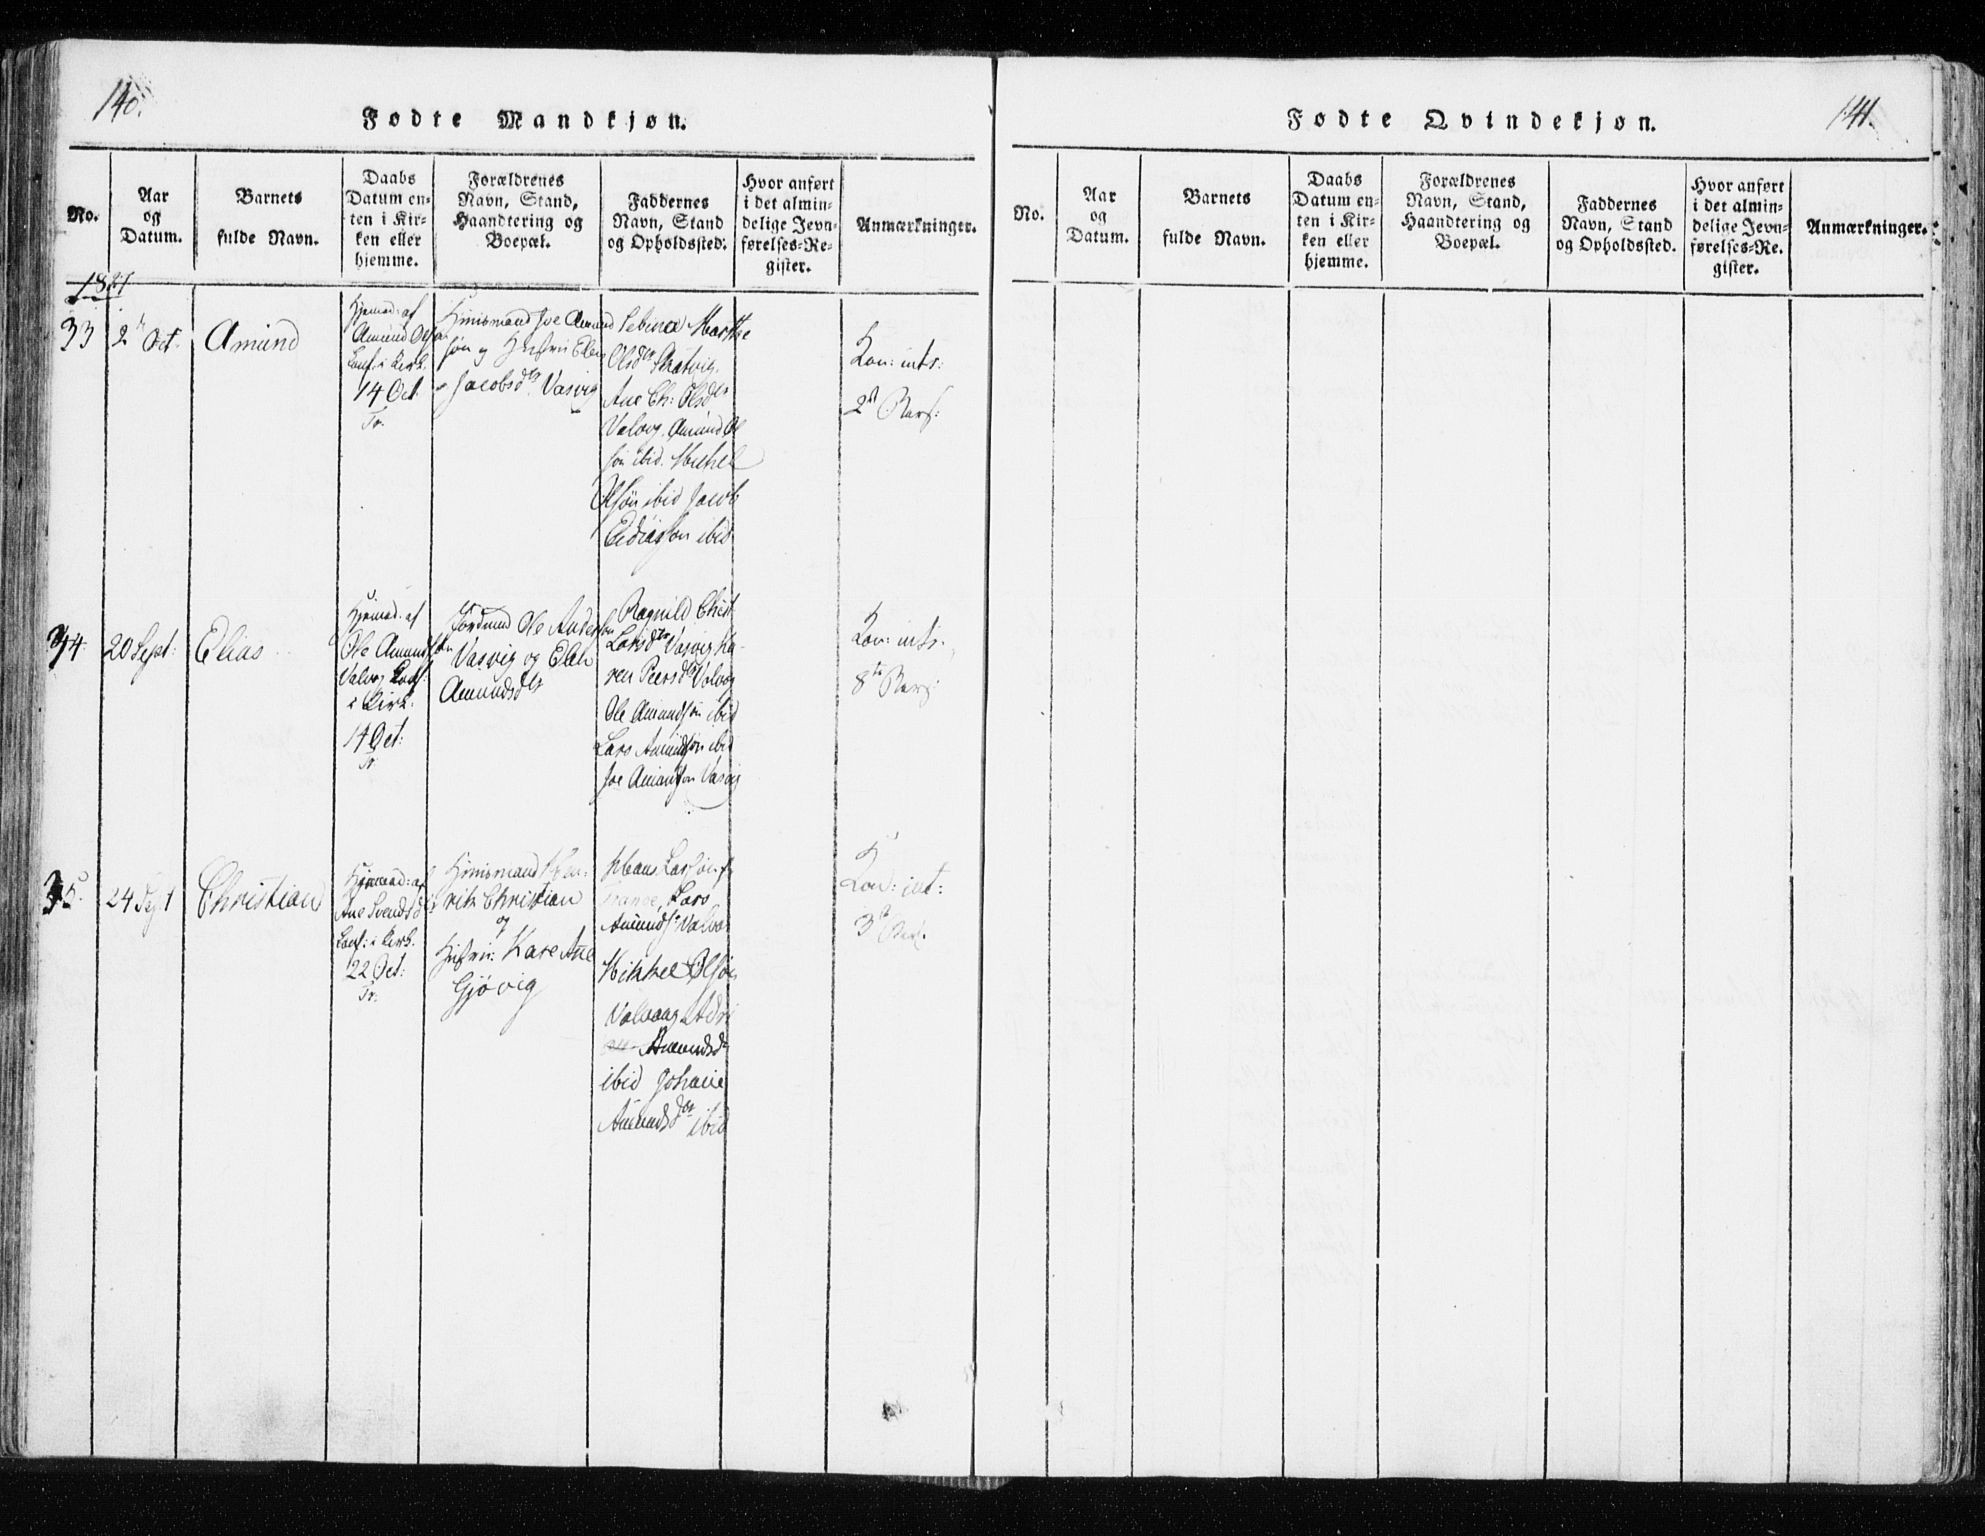 140.
Fødte Mandkjøn.
No.
Aar
og
Datum.
Barnets
fulde Navn.
Daabs
Datum en-
ten i Kir-
ken eller
hjemme.
Forældrenes
Navn, Stand,
Haandtering og
Boepæl.
Faddernes
Navn, Stand
og Opholdssted.
Hvor anført
i det almin-
delige Jevn-
førelses-Re-
gister.
Anmærkninger.
33
2 Oct.
Amund
Hjemed: af
Amund Olsøn
Conf: i Kirk.
14 Oct:
Tr.
Huusmand Joe Amund
søn og Hustru Elen
Jacobsdtr Vasvig
Marthe
Olsdtr
Ane Ch: Olsdtr
Valvog. Amund Ol
søn ibid. Mickel
Olsøn ibid Jacob
ibid
Kon: ints:
2
34
20 Sept:
Elias
Hjemed: af
Ole Amundsøn
Valvog Conf:
i Kirk.
14 Oct:
Tr.
Ole Anderson
Vasvig og Elen
Amundsdtr
Ragnild Christ
Larsdtr Vasvig Ka-
ren Peersdtr Valvog
Ole Amundsøn ibid
Lars Amundsøn ibid
Joe Amundsøn Vasvig
Kon: ints.
8
35
24 Sept
Christian
Hjemed: af
Ane Svendsd
Conf: i Kirk.
22 Oct:
Tr.
Huusmand Hen-
rik Christian
og
Hustru: Kare Ane
Gjövig
Hans Larsøn
Lars
Amunds Valvog
Mikkel Olsøn
Valvaag
Amundsd
ibid Johane
Amundsdtr ibid
Kon: int:
3
141.
Fødte Qvindekjøn.
No.
Aar
og
Datum.
Barnets
fulde Navn.
Daabs
Datum en-
ten i Kir-
ken eller
hjemme.
Forældrenes
Navn, Stand,
Haandtering og
Boepæl.
Faddernes
Navn, Stand
og Opholdssted.
Hvor anført
i det almin-
delige Jevn-
førelses-Re-
gister.
Anmærkninger.